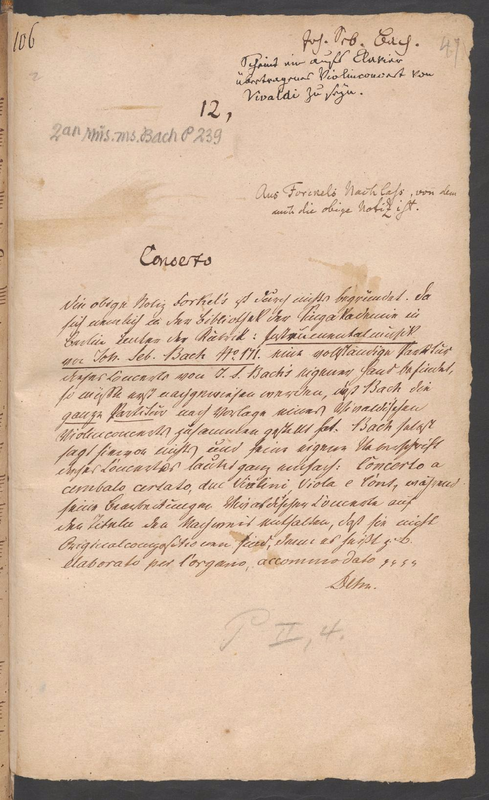 106
Joh. Seb. Bach.
47
Scheint ein aufs Clavier
übertragenes Violinconcert von
Vivaldi zu seyn.
12,
2 an Mus. ms. Bach P 239
Aus Forkels Nachlass, von dem
auch die obige Notiz ist.
Concerto
Die obige Notiz Forkel's ist durch nichts begründet. Da
sich nemlich in der Bibliothek der Singakademie in
Berlin unter der Rubrik: Instrumentalmusik
von Joh. Seb. Bach eine vollständige Partitur
dieses Concerts von J. S. Bach's eigener Hand befindet,
so müsste erst nachgewiesen werden, dass Bach die
ganze Partitur nach Vorlage eines Vivaldischen
Violinconcerts zusammen gestellt hat. Bach selbst
sagt hiervon nichts und seine eigene Ueberschrift
dieses Concertes lautet ganz einfach: Concerto a
cembalo certato, due Violini Viola e Cont, während
seine Bearbeitungen Vivaldischer Concerte auf
den Titeln den Nachweis enthalten, dass sie nicht
Originalcompositionen sind, denn es heißt z. B.
elaborato per l'organo, accommodato
Dehn.
P II, 4.